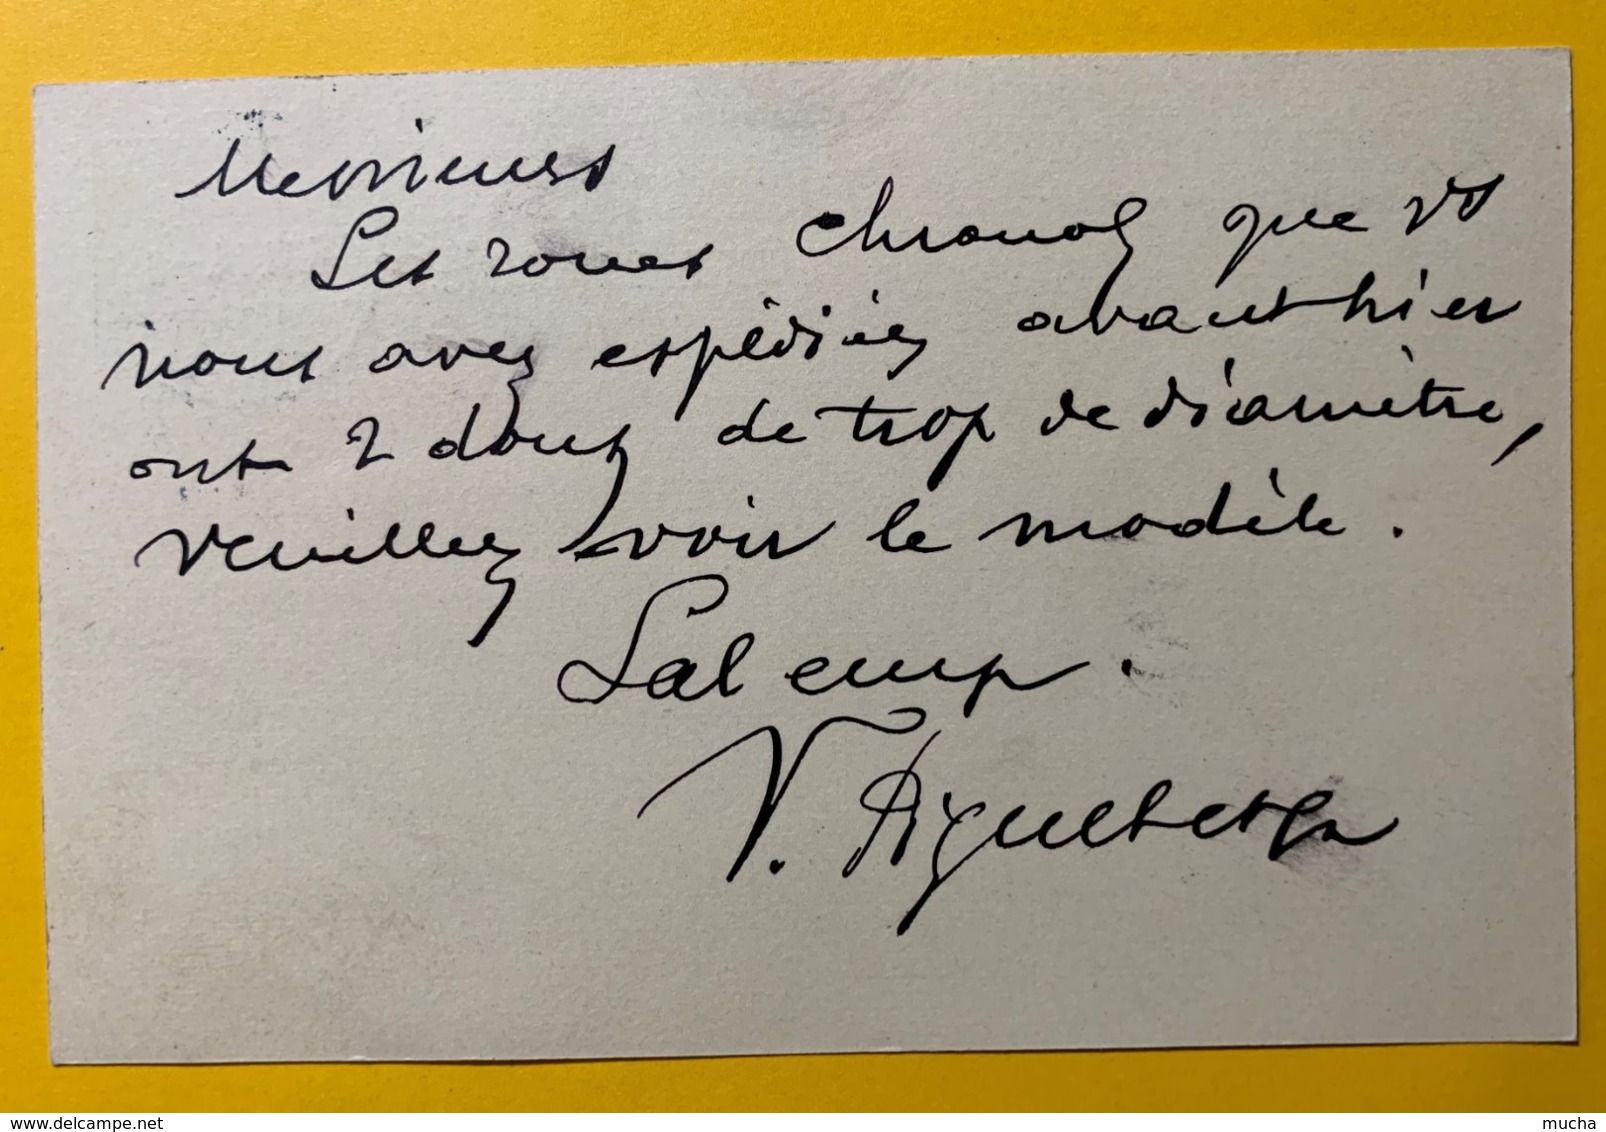 Messieurs
Les roues chronog que vs
nous avez expédiéz avant hier
ont 2 douz de trop de diamètre,
veuillez voir le modèle.
Sal emp.
V.
delcampe.net
mucha